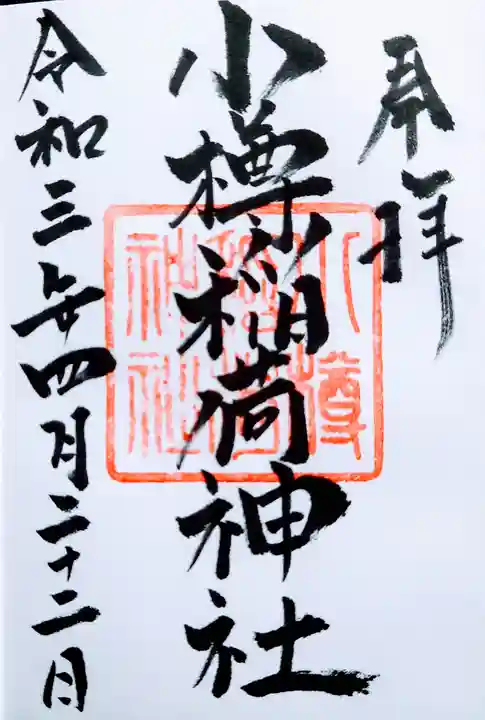 奉拝
小樽稲荷神社
小樽
稲荷
神社
令和三年四月二十二日